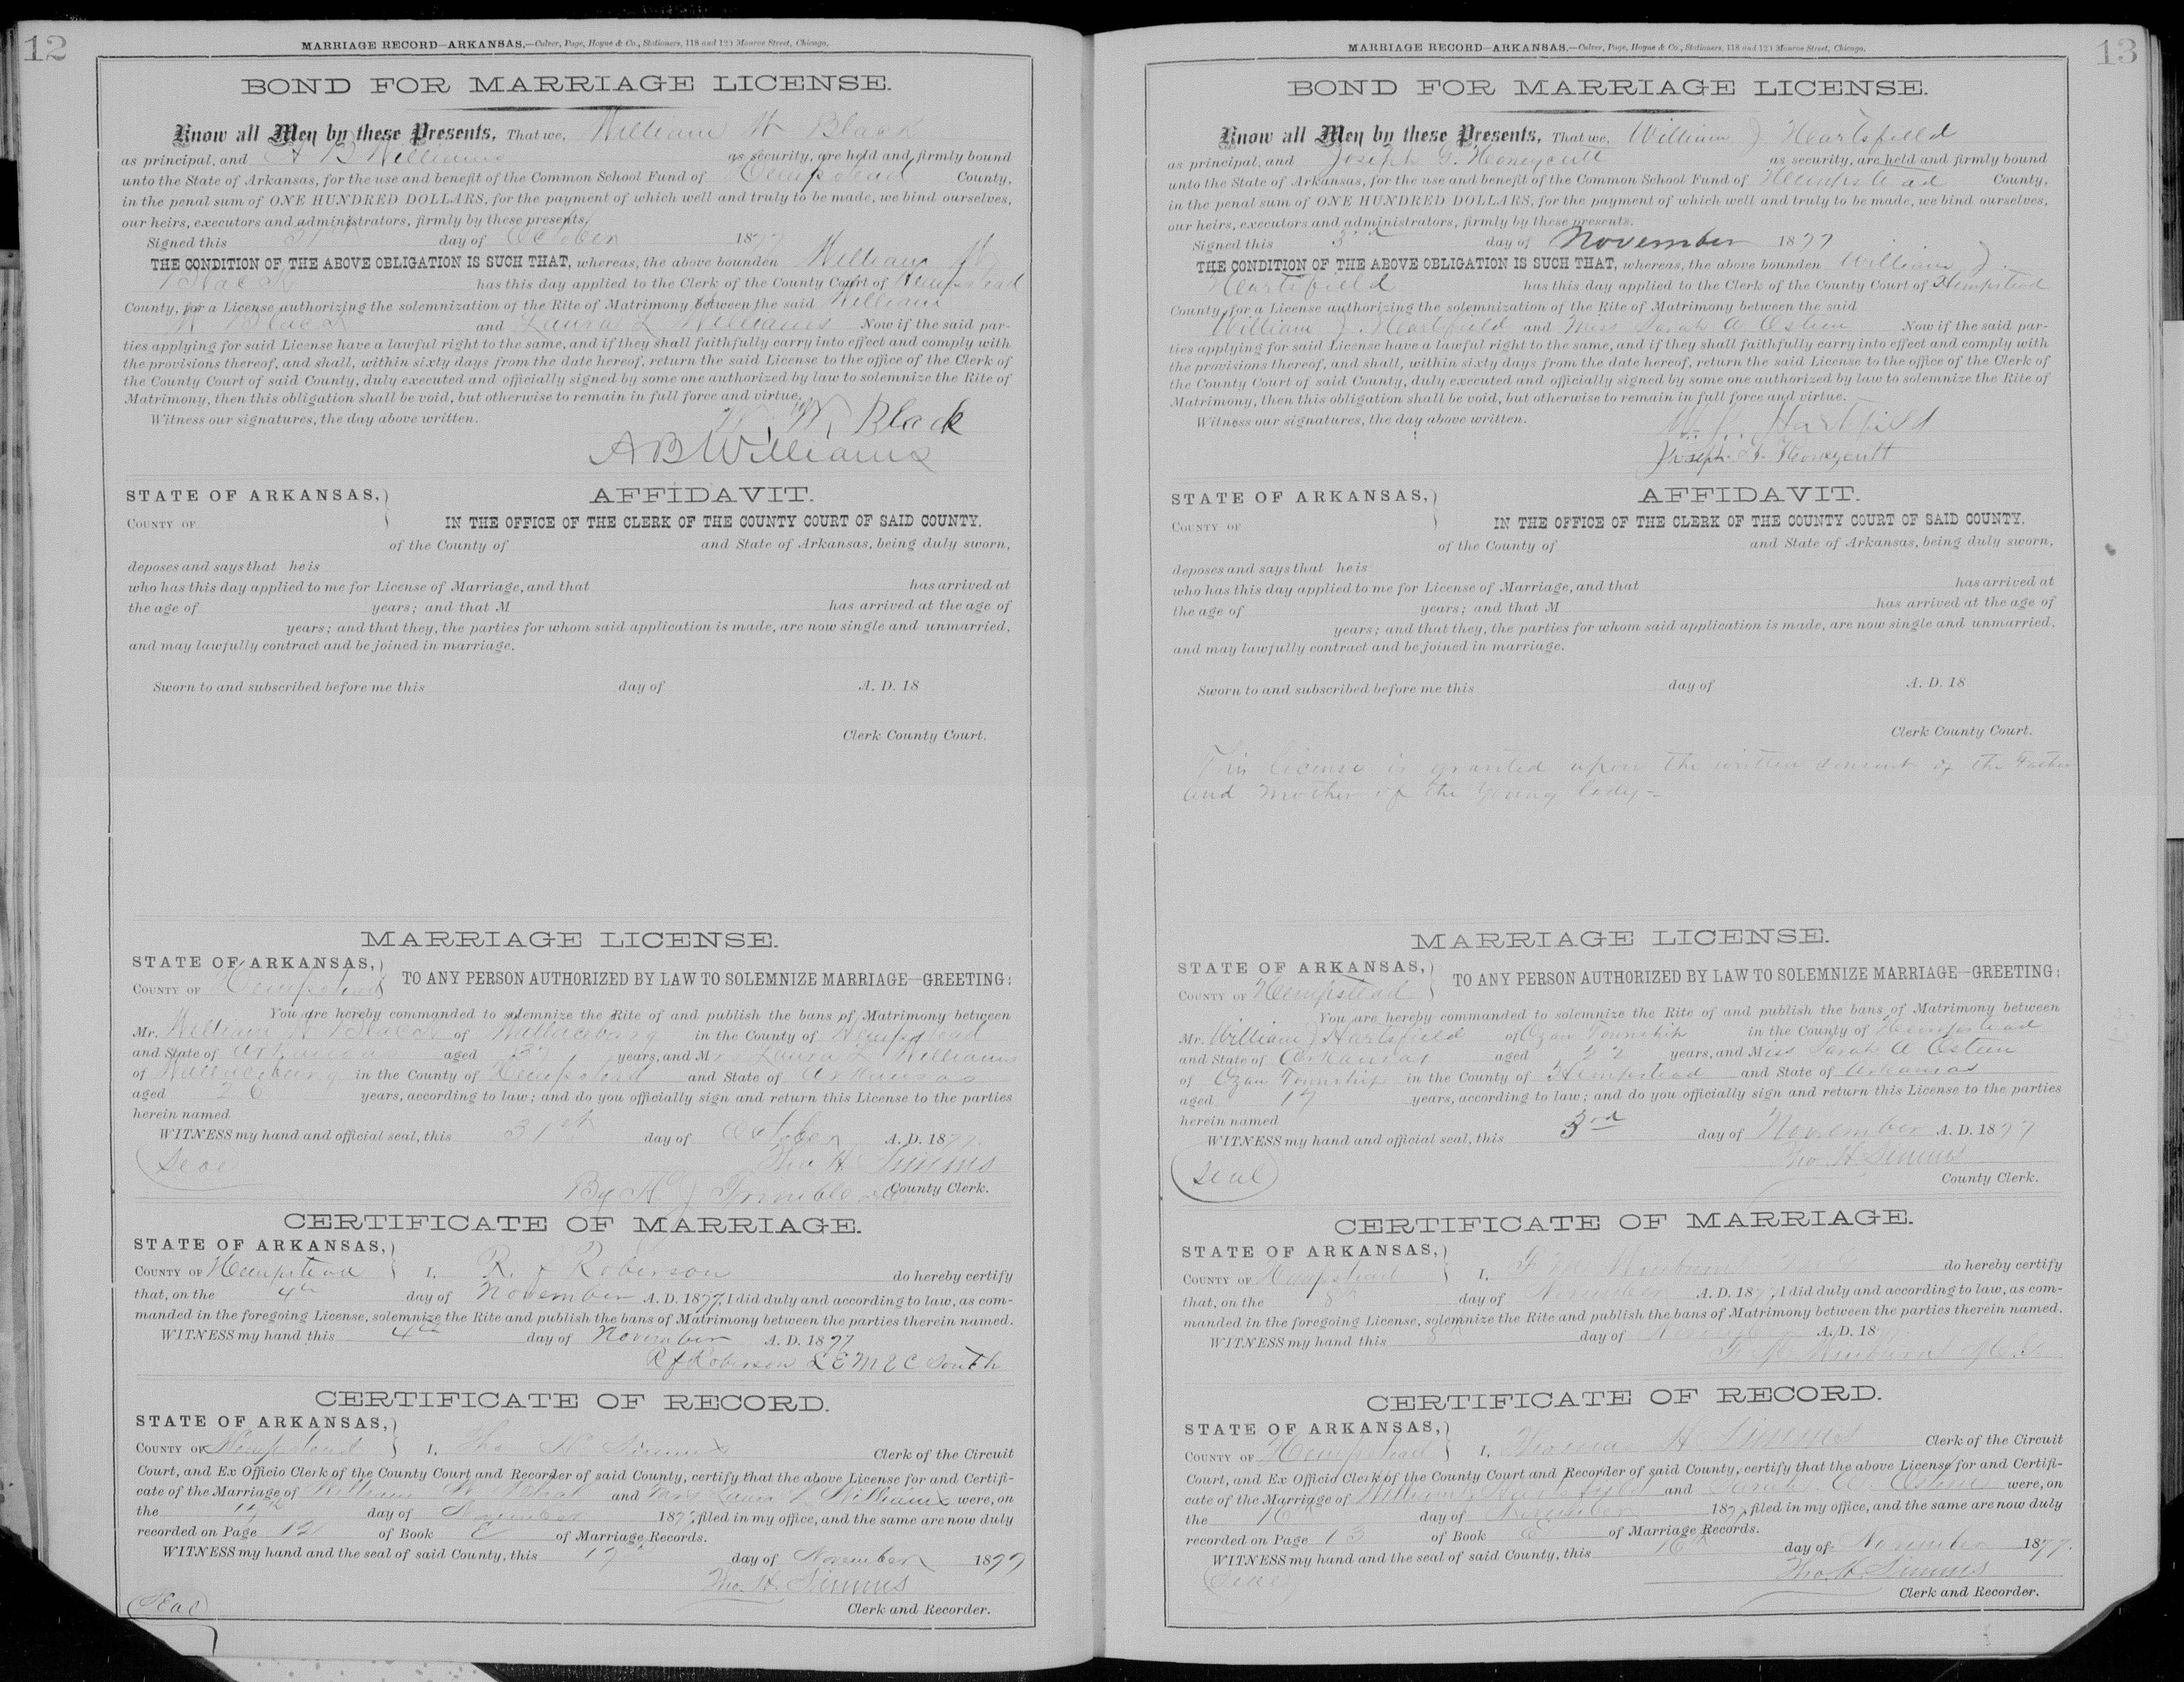 12
MARRIAGE RECORD—ARKANSAS.—Culver, Page, Hoyne & Co., Stationers, 118 and 120 Monroe Street, Chicago.
BOND FOR MARRIAGE LICENSE.
Know all Men by these Presents, That we, William W Black
as principal, and A B Williams as security, are held and firmly bound
unto the State of Arkansas, for the use and benefit of the Common School Fund of Hempstead County,
in the penal sum of ONE HUNDRED DOLLARS, for the payment of which well and truly to be made, we bind ourselves,
our heirs, executors and administrators, firmly by these presents.
Signed this 31 day of October 1877
THE CONDITION OF THE ABOVE OBLIGATION IS SUCH THAT, whereas, the above bounden William W
Black has this day applied to the Clerk of the County Court of Hempstead
County, for a License authorizing the solemnization of the Rite of Matrimony between the said William
W Black and Laura L Williams Now if the said par-
ties applying for said License have a lawful right to the same, and if they shall faithfully carry into effect and comply with
the provisions thereof, and shall, within sixty days from the date hereof, return the said License to the office of the Clerk of
the County Court of said County, duly executed and officially signed by some one authorized by law to solemnize the Rite of
Matrimony, then this obligation shall be void, but otherwise to remain in full force and virtue.
Witness our signatures, the day above written.
W. W. Black
A B Williams
STATE OF ARKANSAS,
AFFIDAVIT.
COUNTY OF
IN THE OFFICE OF THE CLERK OF THE COUNTY COURT OF SAID COUNTY.
of the County of and State of Arkansas, being duly sworn,
deposes and says that he is
who has this day applied to me for License of Marriage, and that has arrived at
the age of years; and that M has arrived at the age of
years; and that they, the parties for whom said application is made, are now single and unmarried,
and may lawfully contract and be joined in marriage.
Sworn to and subscribed before me this day of A. D. 18
Clerk County Court.
MARRIAGE LICENSE.
STATE OF ARKANSAS,
COUNTY OF Hempstead TO ANY PERSON AUTHORIZED BY LAW TO SOLEMNIZE MARRIAGE—GREETING:
You are hereby commanded to solemnize the Rite of and publish the bans of Matrimony between
Mr. William W Black of Wallaceburg in the County of Hempstead
and State of Arkansas aged years, and Mrs Laura L Williams
of Wallaceburg in the County of Hempstead and State of Arkansas
aged 26 years, according to law; and do you officially sign and return this License to the parties
herein named
WITNESS my hand and official seal, this 31st day of October A. D. 1877
Seal Tho H Simms
By H J Trimble DC County Clerk.
CERTIFICATE OF MARRIAGE.
STATE OF ARKANSAS,
COUNTY OF Hempstead I, R. J Roberson do hereby certify
that, on the 4th day of November A. D. 1877, I did duly and according to law, as com-
manded in the foregoing License, solemnize the Rite and publish the bans of Matrimony between the parties therein named.
WITNESS my hand this 4th day of November A. D. 1877
R J Roberson L E M E C South
CERTIFICATE OF RECORD.
STATE OF ARKANSAS,
COUNTY OF Hempstead I, Tho H Simms Clerk of the Circuit
Court, and Ex Officio Clerk of the County Court and Recorder of said County, certify that the above License for and Certifi-
cate of the Marriage of William W Black and Mrs Laura L Williams were, on
the day of November 1877, filed in my office, and the same are now duly
recorded on Page 12 of Book E of Marriage Records.
WITNESS my hand and the seal of said County, this day of November 1877
Tho. H. Simms
Seal Clerk and Recorder.
13
MARRIAGE RECORD—ARKANSAS.—Culver, Page, Hoyne & Co., Stationers, 118 and 120 Monroe Street, Chicago.
BOND FOR MARRIAGE LICENSE.
Know all Men by these Presents, That we, William J Heartsfield
as principal, and Joseph G. Honeycutt as security, are held and firmly bound
unto the State of Arkansas, for the use and benefit of the Common School Fund of Hempstead County,
in the penal sum of ONE HUNDRED DOLLARS, for the payment of which well and truly to be made, we bind ourselves,
our heirs, executors and administrators, firmly by these presents.
Signed this 3rd day of November 1877
THE CONDITION OF THE ABOVE OBLIGATION IS SUCH THAT, whereas, the above bounden William J.
Heartsfield has this day applied to the Clerk of the County Court of Hempstead
County, for a License authorizing the solemnization of the Rite of Matrimony between the said
William J. Heartsfield and Miss Sarah A Osteen Now if the said par-
ties applying for said License have a lawful right to the same, and if they shall faithfully carry into effect and comply with
the provisions thereof, and shall, within sixty days from the date hereof, return the said License to the office of the Clerk of
the County Court of said County, duly executed and officially signed by some one authorized by law to solemnize the Rite of
Matrimony, then this obligation shall be void, but otherwise to remain in full force and virtue.
Witness our signatures, the day above written.
W. J. Hartsfield
Joseph G. Honeycutt
STATE OF ARKANSAS,
AFFIDAVIT.
COUNTY OF
IN THE OFFICE OF THE CLERK OF THE COUNTY COURT OF SAID COUNTY.
of the County of and State of Arkansas, being duly sworn,
deposes and says that he is
who has this day applied to me for License of Marriage, and that has arrived at
the age of years; and that M has arrived at the age of
years; and that they, the parties for whom said application is made, are now single and unmarried,
and may lawfully contract and be joined in marriage.
Sworn to and subscribed before me this day of A. D. 18
Clerk County Court.
This license is granted upon the written consent of the Father
and mother of the young lady
MARRIAGE LICENSE.
STATE OF ARKANSAS,
COUNTY OF Hempstead TO ANY PERSON AUTHORIZED BY LAW TO SOLEMNIZE MARRIAGE—GREETING:
You are hereby commanded to solemnize the Rite of and publish the bans of Matrimony between
Mr. William J Hartsfield of Ozan Township in the County of Hempstead
and State of Arkansas aged 22 years, and Miss Sarah A Osteen
of Ozan Township in the County of Hempstead and State of Arkansas
aged 17 years, according to law; and do you officially sign and return this License to the parties
herein named
WITNESS my hand and official seal, this 3rd day of November A. D. 1877
Tho H Simms
Seal County Clerk.
CERTIFICATE OF MARRIAGE.
STATE OF ARKANSAS,
COUNTY OF Hempstead I, do hereby certify
that, on the 8th day of November A. D. 187, I did duly and according to law, as com-
manded in the foregoing License, solemnize the Rite and publish the bans of Matrimony between the parties therein named.
WITNESS my hand this day of November A. D. 18
CERTIFICATE OF RECORD.
STATE OF ARKANSAS,
COUNTY OF Hempstead I, Thomas H Simms Clerk of the Circuit
Court, and Ex Officio Clerk of the County Court and Recorder of said County, certify that the above License for and Certifi-
cate of the Marriage of William J Hartsfield and Sarah A. Osteen were, on
the 16th day of November 1877, filed in my office, and the same are now duly
recorded on Page 13 of Book E of Marriage Records.
WITNESS my hand and the seal of said County, this 16th day of November 1877.
Seal Tho. H. Simms
Clerk and Recorder.